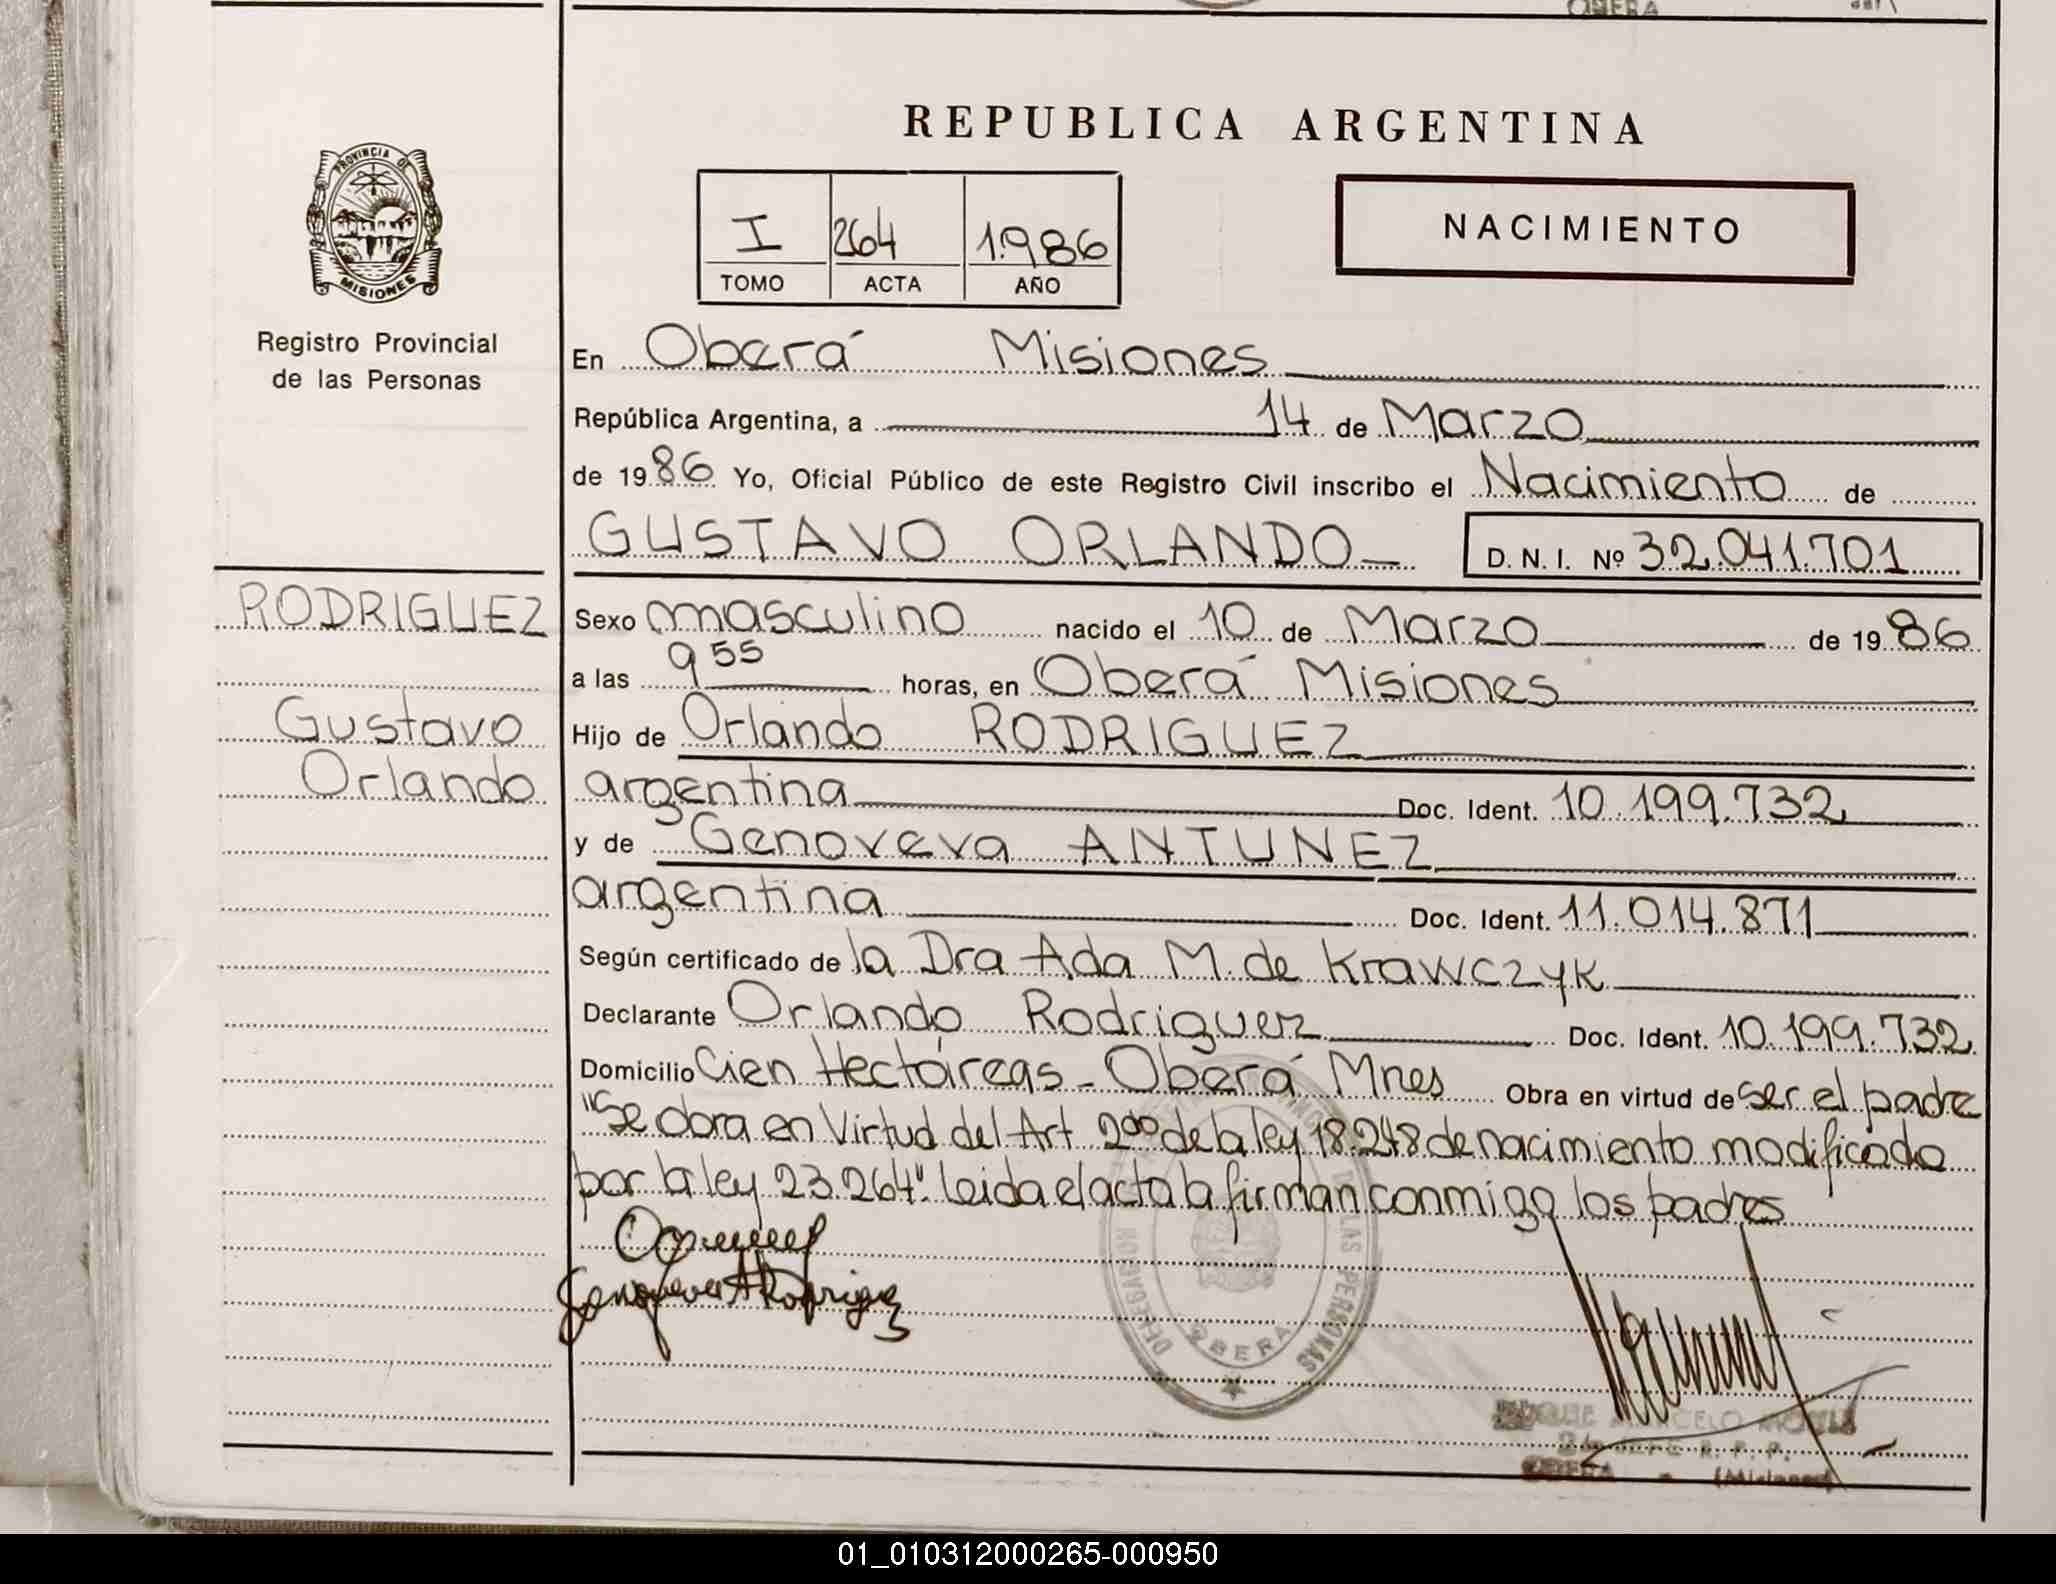 OBERA
REPUBLICA ARGENTINA
PROVINCIA DE
MISIONES
Registro Provincial
de las Personas
I 264 1.986
TOMO ACTA AÑO
NACIMIENTO
En Oberá Misiones
República Argentina, a 14 de Marzo
de 1986 Yo, Oficial Público de este Registro Civil inscribo el Nacimiento de
GUSTAVO ORLANDO D. N. I. Nº 32.041.701
RODRIGUEZ
Gustavo
Orlando
Sexo masculino nacido el 10 de Marzo de 1986
a las 9 55 horas, en Oberá Misiones
Hijo de Orlando RODRIGUEZ
argentina Doc. Ident. 10.199.732
y de Genoveva ANTUNEZ
argentina Doc. Ident. 11.014.871
Según certificado de la Dra Ada M. de Krawczyk
Declarante Orlando Rodriguez Doc. Ident. 10.199.732
Domicilio Cien Hectáreas - Oberá Mnes Obra en virtud de ser el padre
"Se obra en Virtud del Art 2do de la ley 18.248 de nacimiento modificado
por la ley 23.264". Leida el acta la firman conmigo los padres
Genoveva A Rodriguez
DE LAS PERSONAS
OBERA
R. P. P.
OBERA - (Misiones)
01_010312000265-000950